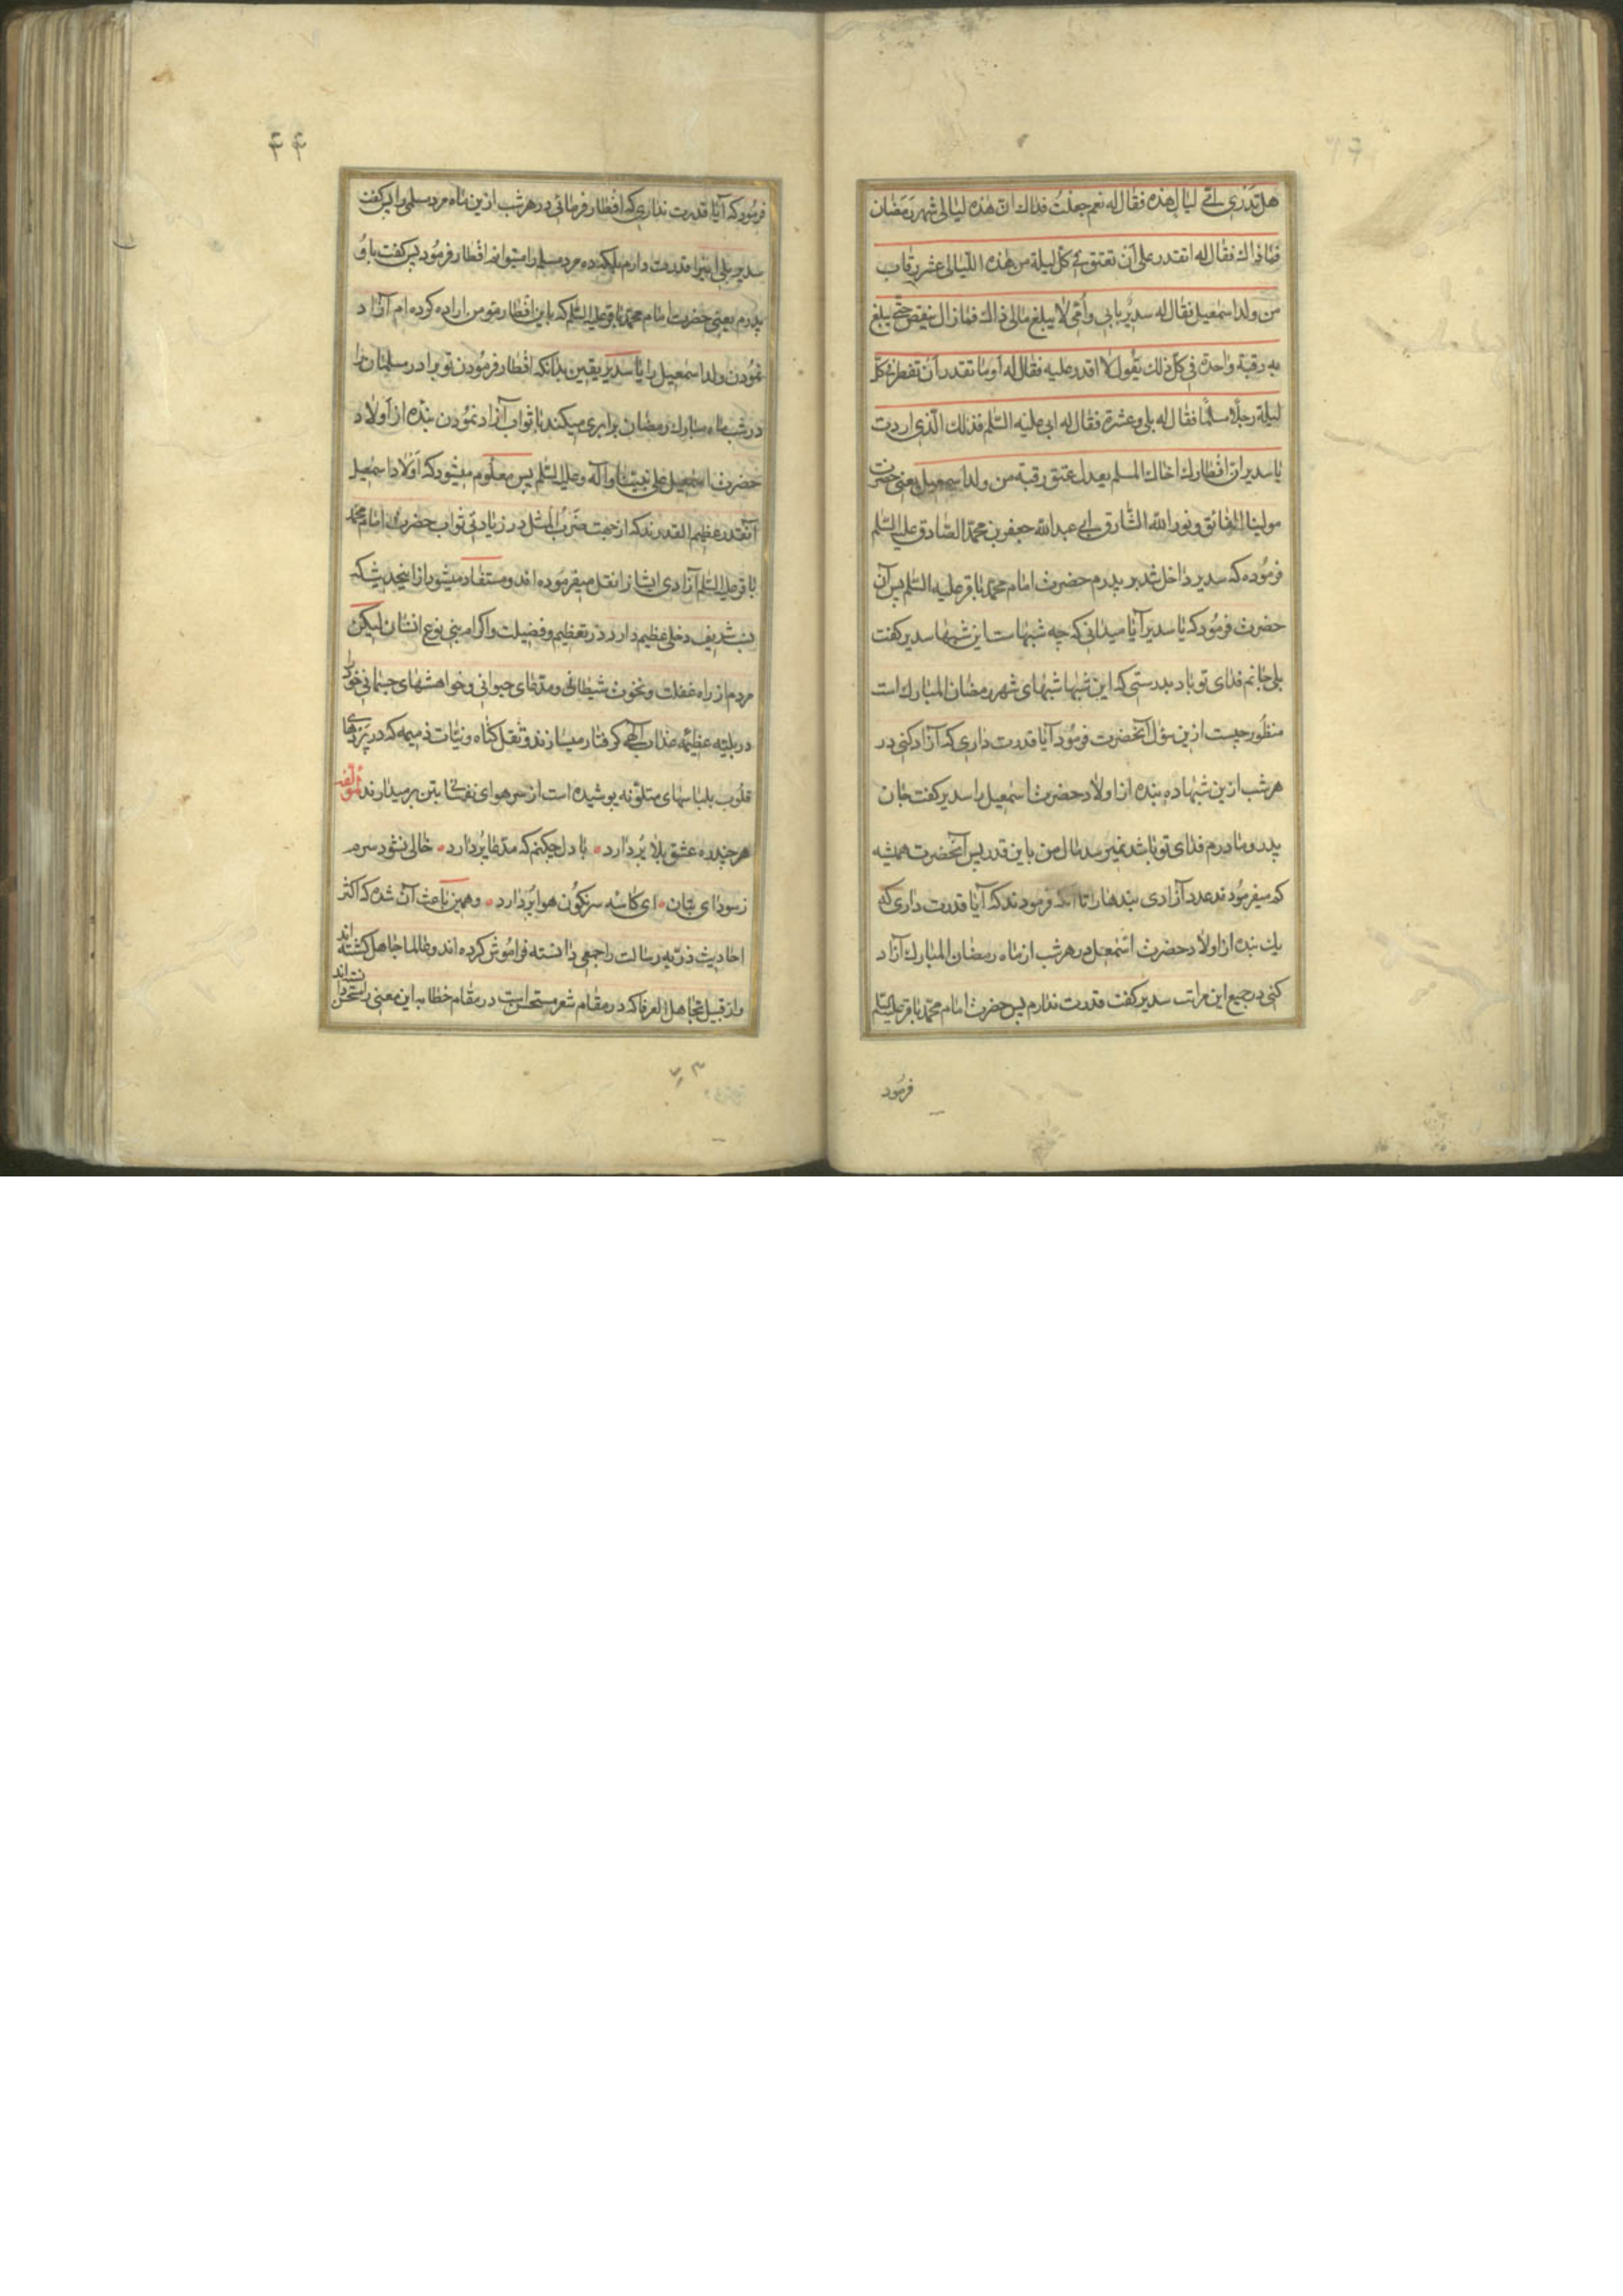 هل تدری ای لیال هذه فقال له نعم جعلت فداك ان هذه لیالی شهر رمضان
فما ذاك فقال له اتقدر علی أن تعتق فی كل لیلة من هذه اللیالی عشر رقاب
من ولد اسمعیل فقال له سدیر بابی وأمی لا یبلغ مالی ذاك فما زال ینقص حتی یبلغ
به رقبة واحدة فی كل ذلك یقول لا اقدر علیه فقال له أو ما تقدر أن تفطر فی كل
لیلة رجلا مسلما فقال له بلی وعشرة فقال له ابی علیه السلم فذلك الذی اردت
یا سدیر ان افطارك اخاك المسلم یعدل عتق رقبة من ولد اسمعیل یعنی حضرت
مولینا الفائق ونور الله الشارق ابی عبد الله جعفر بن محمد الصادق علیه السلم
فرموده كه سدیر داخل شد بر پدرم حضرت امام محمد باقر علیه السلم پس آن
حضرت فرمود كه یا سدیر آیا میدانی كه چه شبهاست این شبها سدیر كفت
بلی جانم فدای تو باد بدرستی كه این شبها شبهای شهر رمضان المبارك است
منظور چیست ازین سؤل آنحضرت فرمود آیا قدرت داری كه آزاد كنی در
هر شب ازین شبها ده بنده از اولاد حضرت اسمعیل را سدیر كفت جان
پدر و مادرم فدای تو باشد نمیرسد مال من باین قدر پس آنحضرت همیشه
كم میفرمودند عدد آزادی بندها را تا آنكه فرمودند كه آیا قدرت داری كه
یك بنده از اولاد حضرت اسمعیل در هر شب از ماه رمضان المبارك آزاد
كنی در جمیع این مراتب سدیر كفت قدرت ندارم پس حضرت امام محمد باقر علیه السلم
فرمود
۴۴
فرمود كه آیا قدرت نداری كه افطار فرمائی در هر شب ازین ماه مرد مسلمی را پس كفت
سدیر بلی اینرا قدرت دارم بلكه ده مرد مسلم را میتوانم افطار فرمود پس كفت باو
پدرم یعنی حضرت امام محمد باقر علیه السلم كه باین افطار تو من اراده كرده ام آزاد
نمودن ولد اسمعیل را یا سدیر بیقین بدانكه افطار فرمودن تو برادر مسلمان را
در شب ماه مبارك رمضان برابری میكند با ثواب آزاد نمودن بنده از اولاد
حضرت اسمعیل علی نبینا وآله وعلیه السلم پس معلوم میشود كه اولاد اسمعیل
آنقدر عظیم القدرند كه از جهت ضرب المثل در زیادتی ثواب حضرت امام محمد
باقر علیه السلم آزادی ایشانرا نقل میفرموده اند و مستفاد میشود از اینحدیث كه
نسب شریف دخلی عظیم دارد در تعظیم و فضیلت و اكرام بنی نوع انسان لیكن
مردم از راه غفلت و نخوت شیطانی و مدعای حیوانی و خواهشهای جسمانی خود را
در بلیه عظیمه عذاب آلهی كرفتار میسازند و ثقل كناه و نیات ذمیمه كه در پردهای
قلوب بلباسهای متلونه پوشیده است از حر هوای نفسانی بتن برمیدارند لمؤلفه
هر چند ره عشق بلا بر دارد • با دل چكنم كه مدعا بر دارد • خالی نشود سرم
ز سودای بتان • ای كاسه سرنكون هوا بر دارد • و همین باعث آن شده كه اكثر
احادیث ذریه رسالت را جمعی دانسته فراموش كرده اند و عالما جاهل كشته اند
واز قبیل تجاهل العرفا كه در مقام شعر مستحسن است در مقام خطا باین معنی را مستحسن دانسته اند